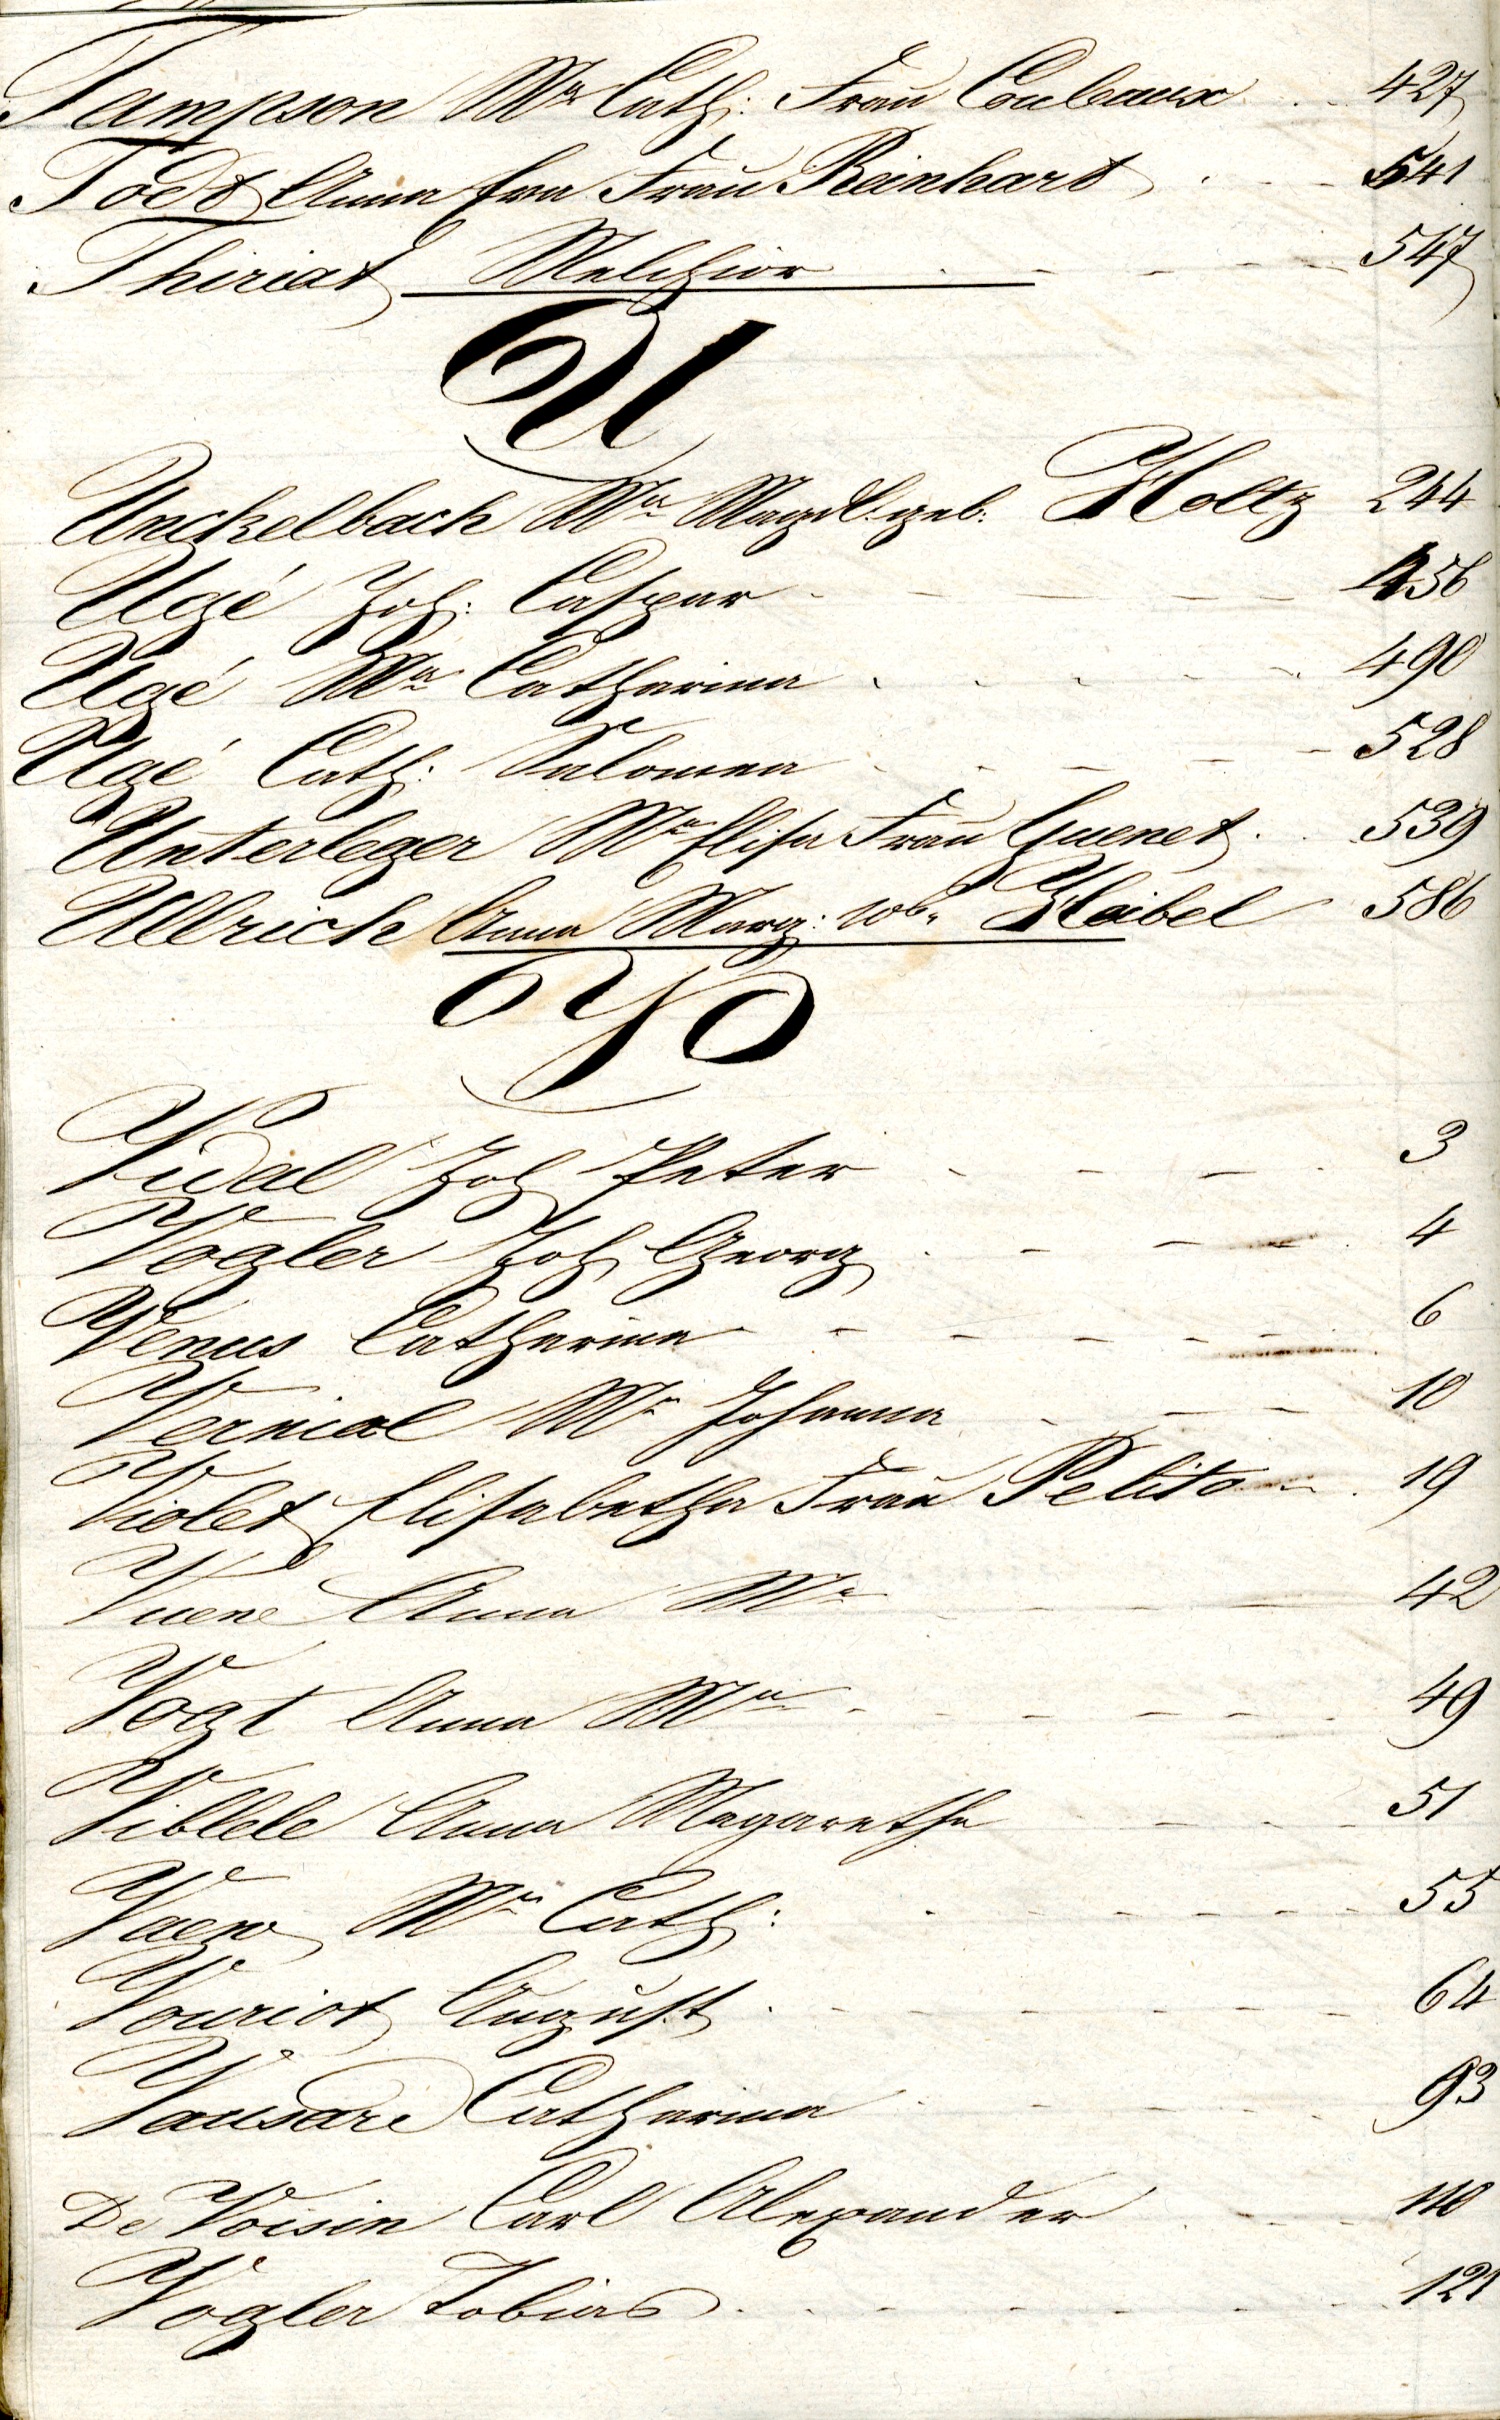 Tampson Ma Cath: Frau Coubaux 427
Todt Anna Eva Frau Reinhart 541
Thiriat Melchior 547
U
Unckelbach Ma Magdl. geb. Holtz 244
Ugé Joh: Caspar 456
Ugé Ma Catharina 490
Ugé Cath: Salomea 528
Unterleger Ma Elisa Frau Guenet 539
Ullrich Anna Marg: Heibel 586
V
Vidal Joh Peter 3
Vogler Joh Georg 4
Venus Catharina 6
Vernial Ma Johanna 10
Violet Elisabetha Frau Pelito 19
Vuene Anna Ma 42
Vogt Anna Ma 49
Viblele Anna Magaretha 51
Ma Cath: 55
Vouriot August 64
Vausare Catharina 93
De Voisin Carl Alexander 110
Vogler Tobias 121